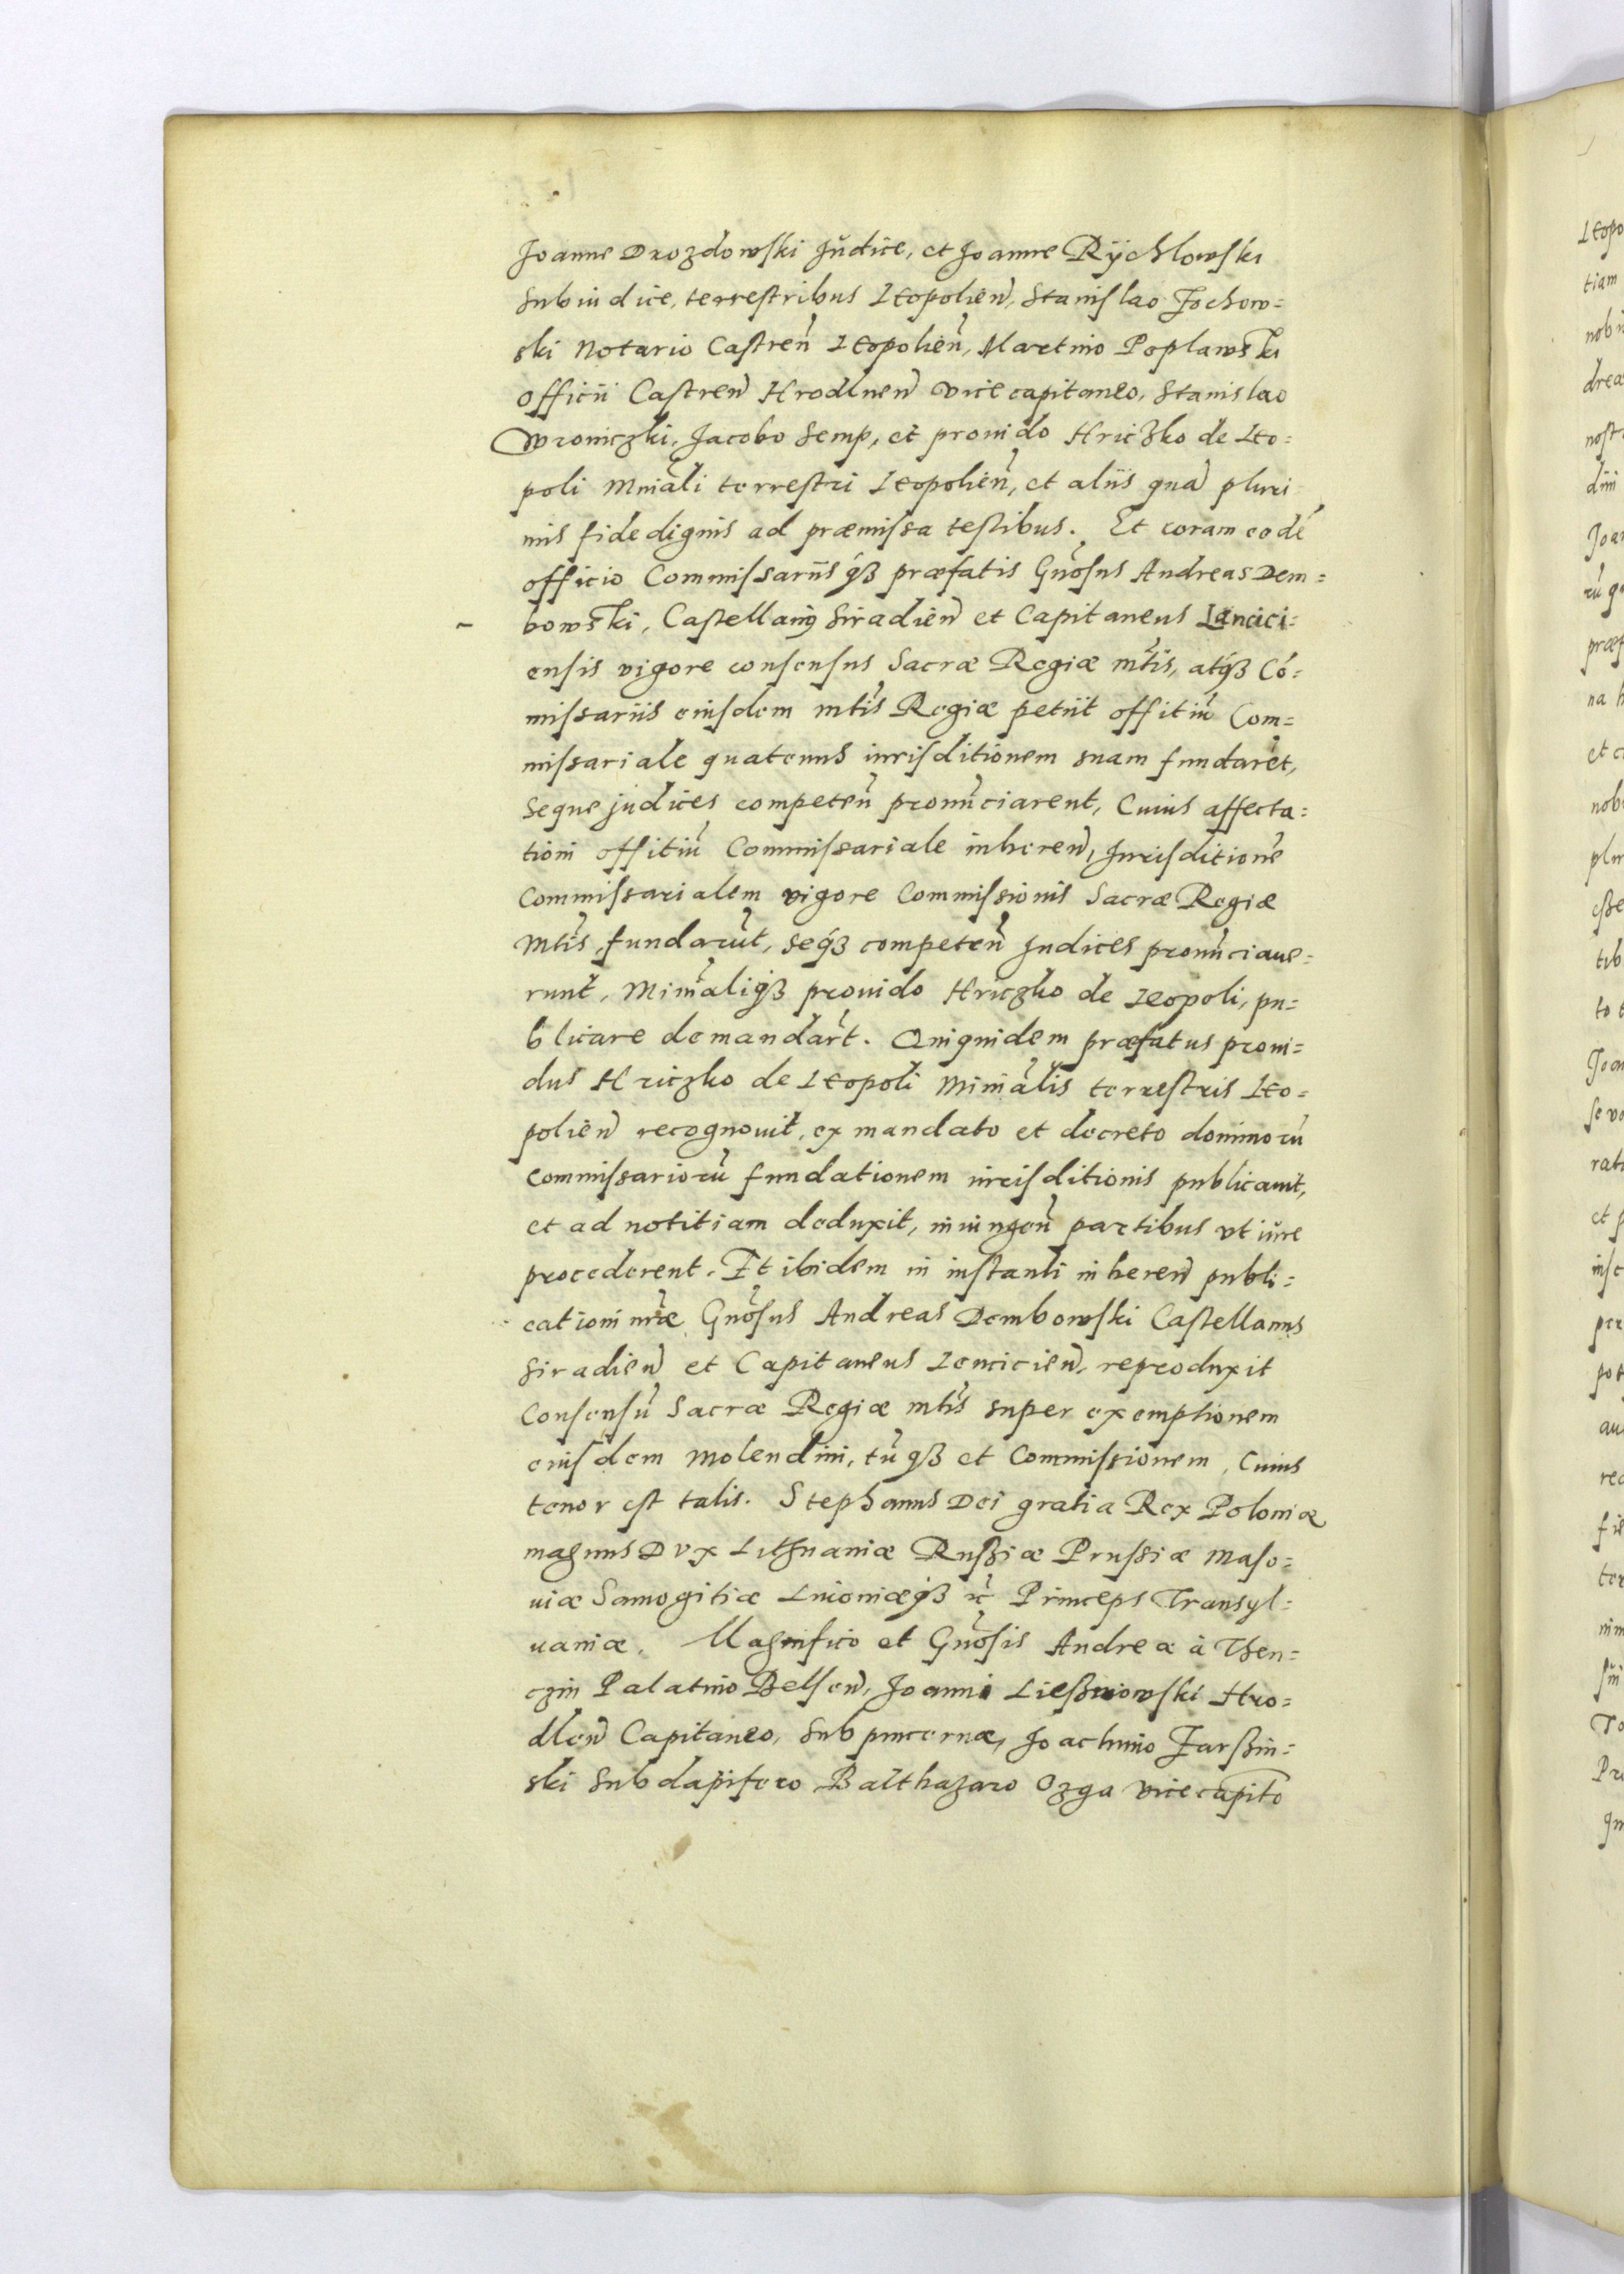 Joanne Drozdowski Judice, et Joanne Rÿchlowski
Subiudice, terrestribus Leopolien̄, Stanislao Jochow=
ski Notario Castren̄ Leopolien̄, Martino Poplawski
officii Castren̄ Hrodlnen̄ vicecapitaneo, Stanislao
Wroniczki, Jacobo Semp, et prouido Hriczko de Leo=
poli Mniāli terrestri Leopolien̄, et aliis quā pluri
mis fide dignis ad præmissa testibus. Et coram eodē
officio Commissariis qꝫ præfatis Gnōsus Andreas Dem=
bowski, Castellanꝰ Siradien̄ et Capitaneus Lancici=
ensis vigore consensus Sacræ Regiæ mtis, atqꝫ Cō=
missariis eiusdem mtis Regiæ petiit offitiū Com=
missariale quatenus iurisditionem suam fundaret,
Seque judices competen̄ pronūciarent, Cuius affecta=
tioni offitiū Commissariale inheren̄, Jurisditionē
Commissarialem vigore Commissionis Sacræ Regiæ
Mtis, fundarūt, seqꝫ competen̄ Judices pronūciaue=
runt, Miniāliqꝫ prouido Hriczko de Leopoli, pu=
blicare demandar̄t. Quiquidem præfatus proui=
dus Hriczko de Leopoli Miniālis terrestris Leo=
polien̄ recognouit, ex mandato et decreto dominorū
Commissariorū fundationem iurisditionis publicauit,
et ad notitiam deduxit, iniungen̄ partibus vt iure
procederent. Et ibidem in instanti inheren̄ publi=
cationi nr̄æ Gnōsus Andreas Dembowski Castellanus
Siradien̄ et Capitaneus Lencicien̄, reproduxit
Consensū Sacræ Regiæ mtis super exemptionem
eiusdem molendini, tū qꝫ et Commissionem, Cuius
tenor est talis. Stephanus Dei gratia Rex Poloniæ
magnus Dux Lithuaniæ Russiæ Prussiæ Maso=
uiæ Samogitiæ Liuoniæqꝫ ꝛc̄ Princeps Transyl=
uaniæ. Magnifico et Gnōsis Andreæ à Then=
czin Palatino Belsen̄, Joanni Ließniowski Hro=
dlen̄ Capitaneo, Subpincernæ, Joachimo Jarßin=
ski Subdapifero Balthazaro Ozga vicecapito